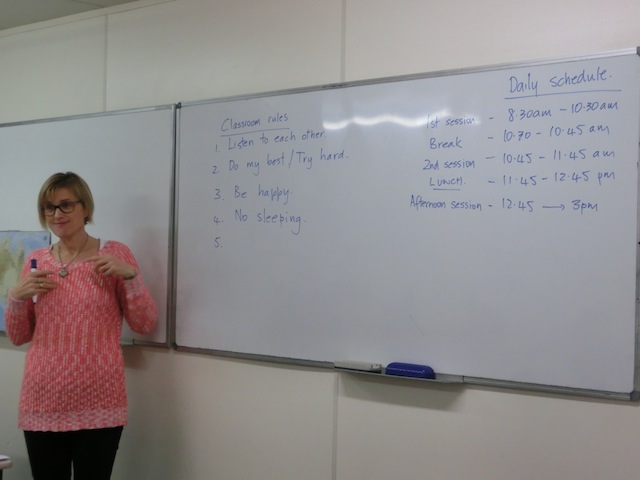 Classroom rules
1. Listen to each other
2. Do my best / Try hard.
3. Be happy.
4. No sleeping.
5.
Daily schedule.
1st session - 8.30am - 10.30am
Break - 10.30 - 10.45 am
2nd session - 10.45 - 11.45 am
LUNCH. - 11.45 - 12.45 pm
Afternoon session - 12.45 → 3pm